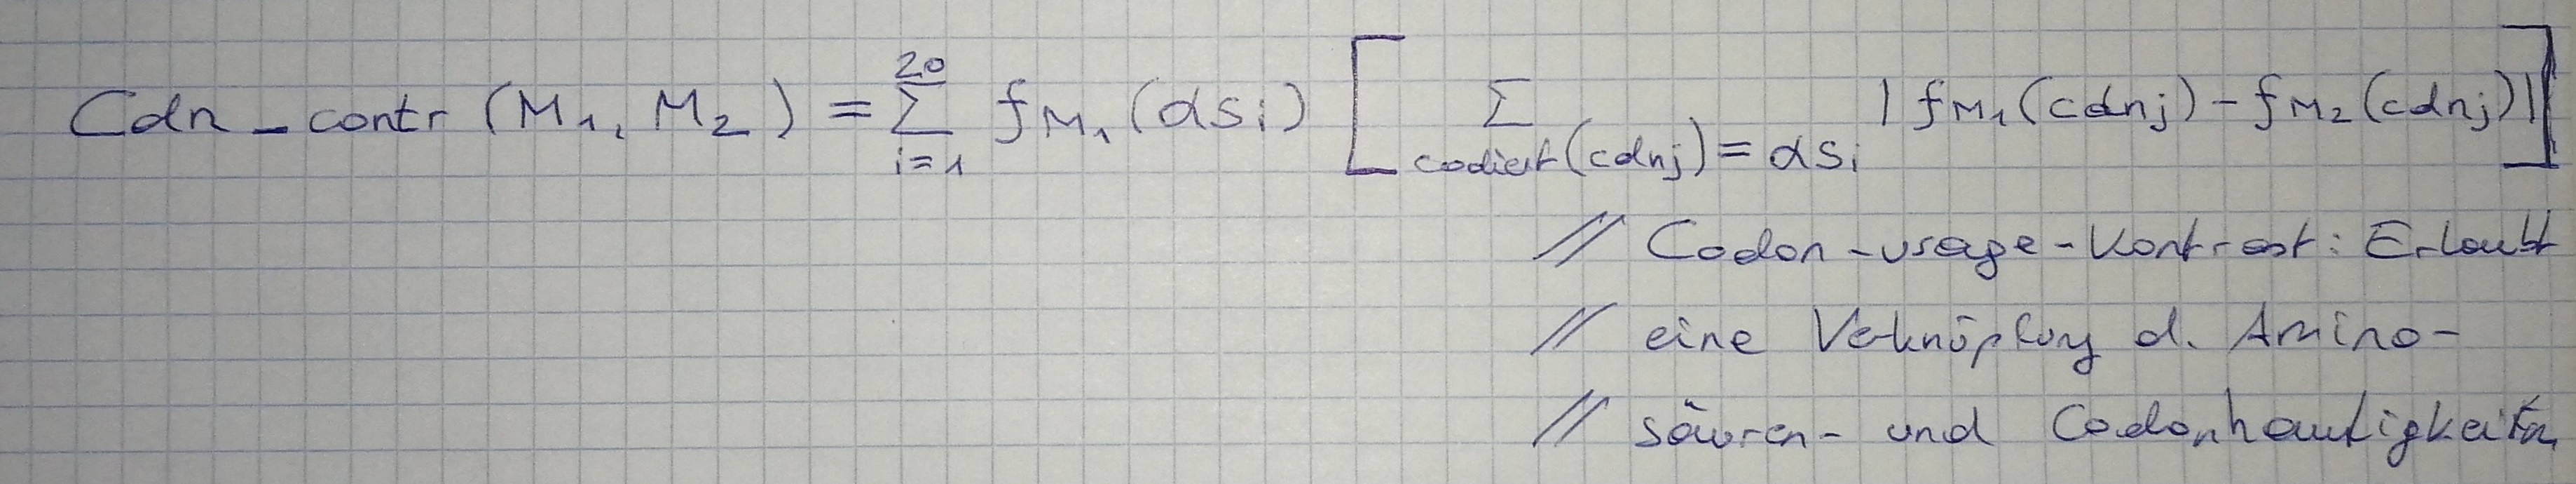 Cdn_contr (M₁, M₂) = ∑_{i=1}^{20} f_{M₁}(as_i) [ ∑_{codiert(cdn_j) = as_i} | f_{M₁}(cdn_j) - f_{M₂}(cdn_j) | ]
// Codon-usage-Kontrast: Erlaubt
// eine Verknüpfung d. Amino-
// säuren- und Codonhäufigkeiten